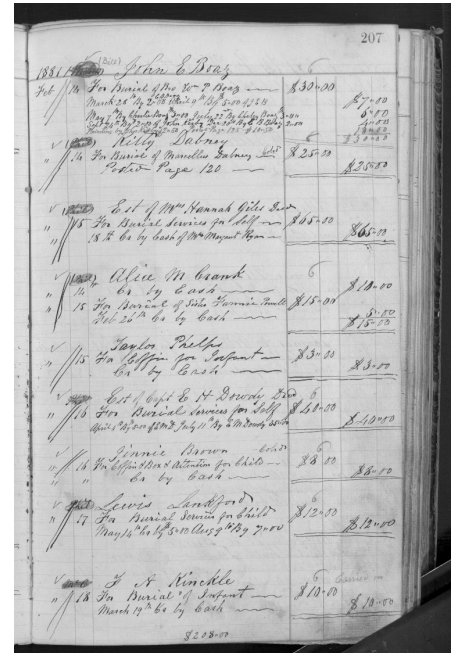 207
(Bill)
1881 John E Boaz 6
Feb 14 For Burial of Bro W P Boaz $30-00
March 28th By 2-00 April 9th By 5-00 $7-00
5-00
4-00
$30-00
Kitty Dabney
" 14 For Burial of Marcellus Dabney Cold $25-00
Posted Page 120 $25-00
Est of Mrs Hannah Giles Decd
" 15 For Burial Services for Self $65-00
18th Cr by Cash of Mrs Margaret Ryan $65-00
Alice M Crank 6
" 14 Cr by Cash $10-00
" 15 For Burial of Sister Fannie $15-00
Feb 26th Cr by Cash 5-00
$15-00
Taylor Phelps
" 15 For Coffin for Infant $3-00
Cr by Cash $3-00
Est of Capt E H Dowdy Decd 6
" 16 For Burial Services for Self $40-00
April By July 11th By $40-00
Jennie Brown Cold 6
" 16 For Coffin & Box & Attention for Child $8-00
" " Cr by Cash $8-00
Lewis Lankford 6
" 17 For Burial Services for Child $12-00
May 14th Cr By 5-00 Aug 9th By 7-00 $12-00
F A Kinckle 6
" 18 For Burial of Infant $10-00
March 19th Cr by Cash $10-00
$208-00